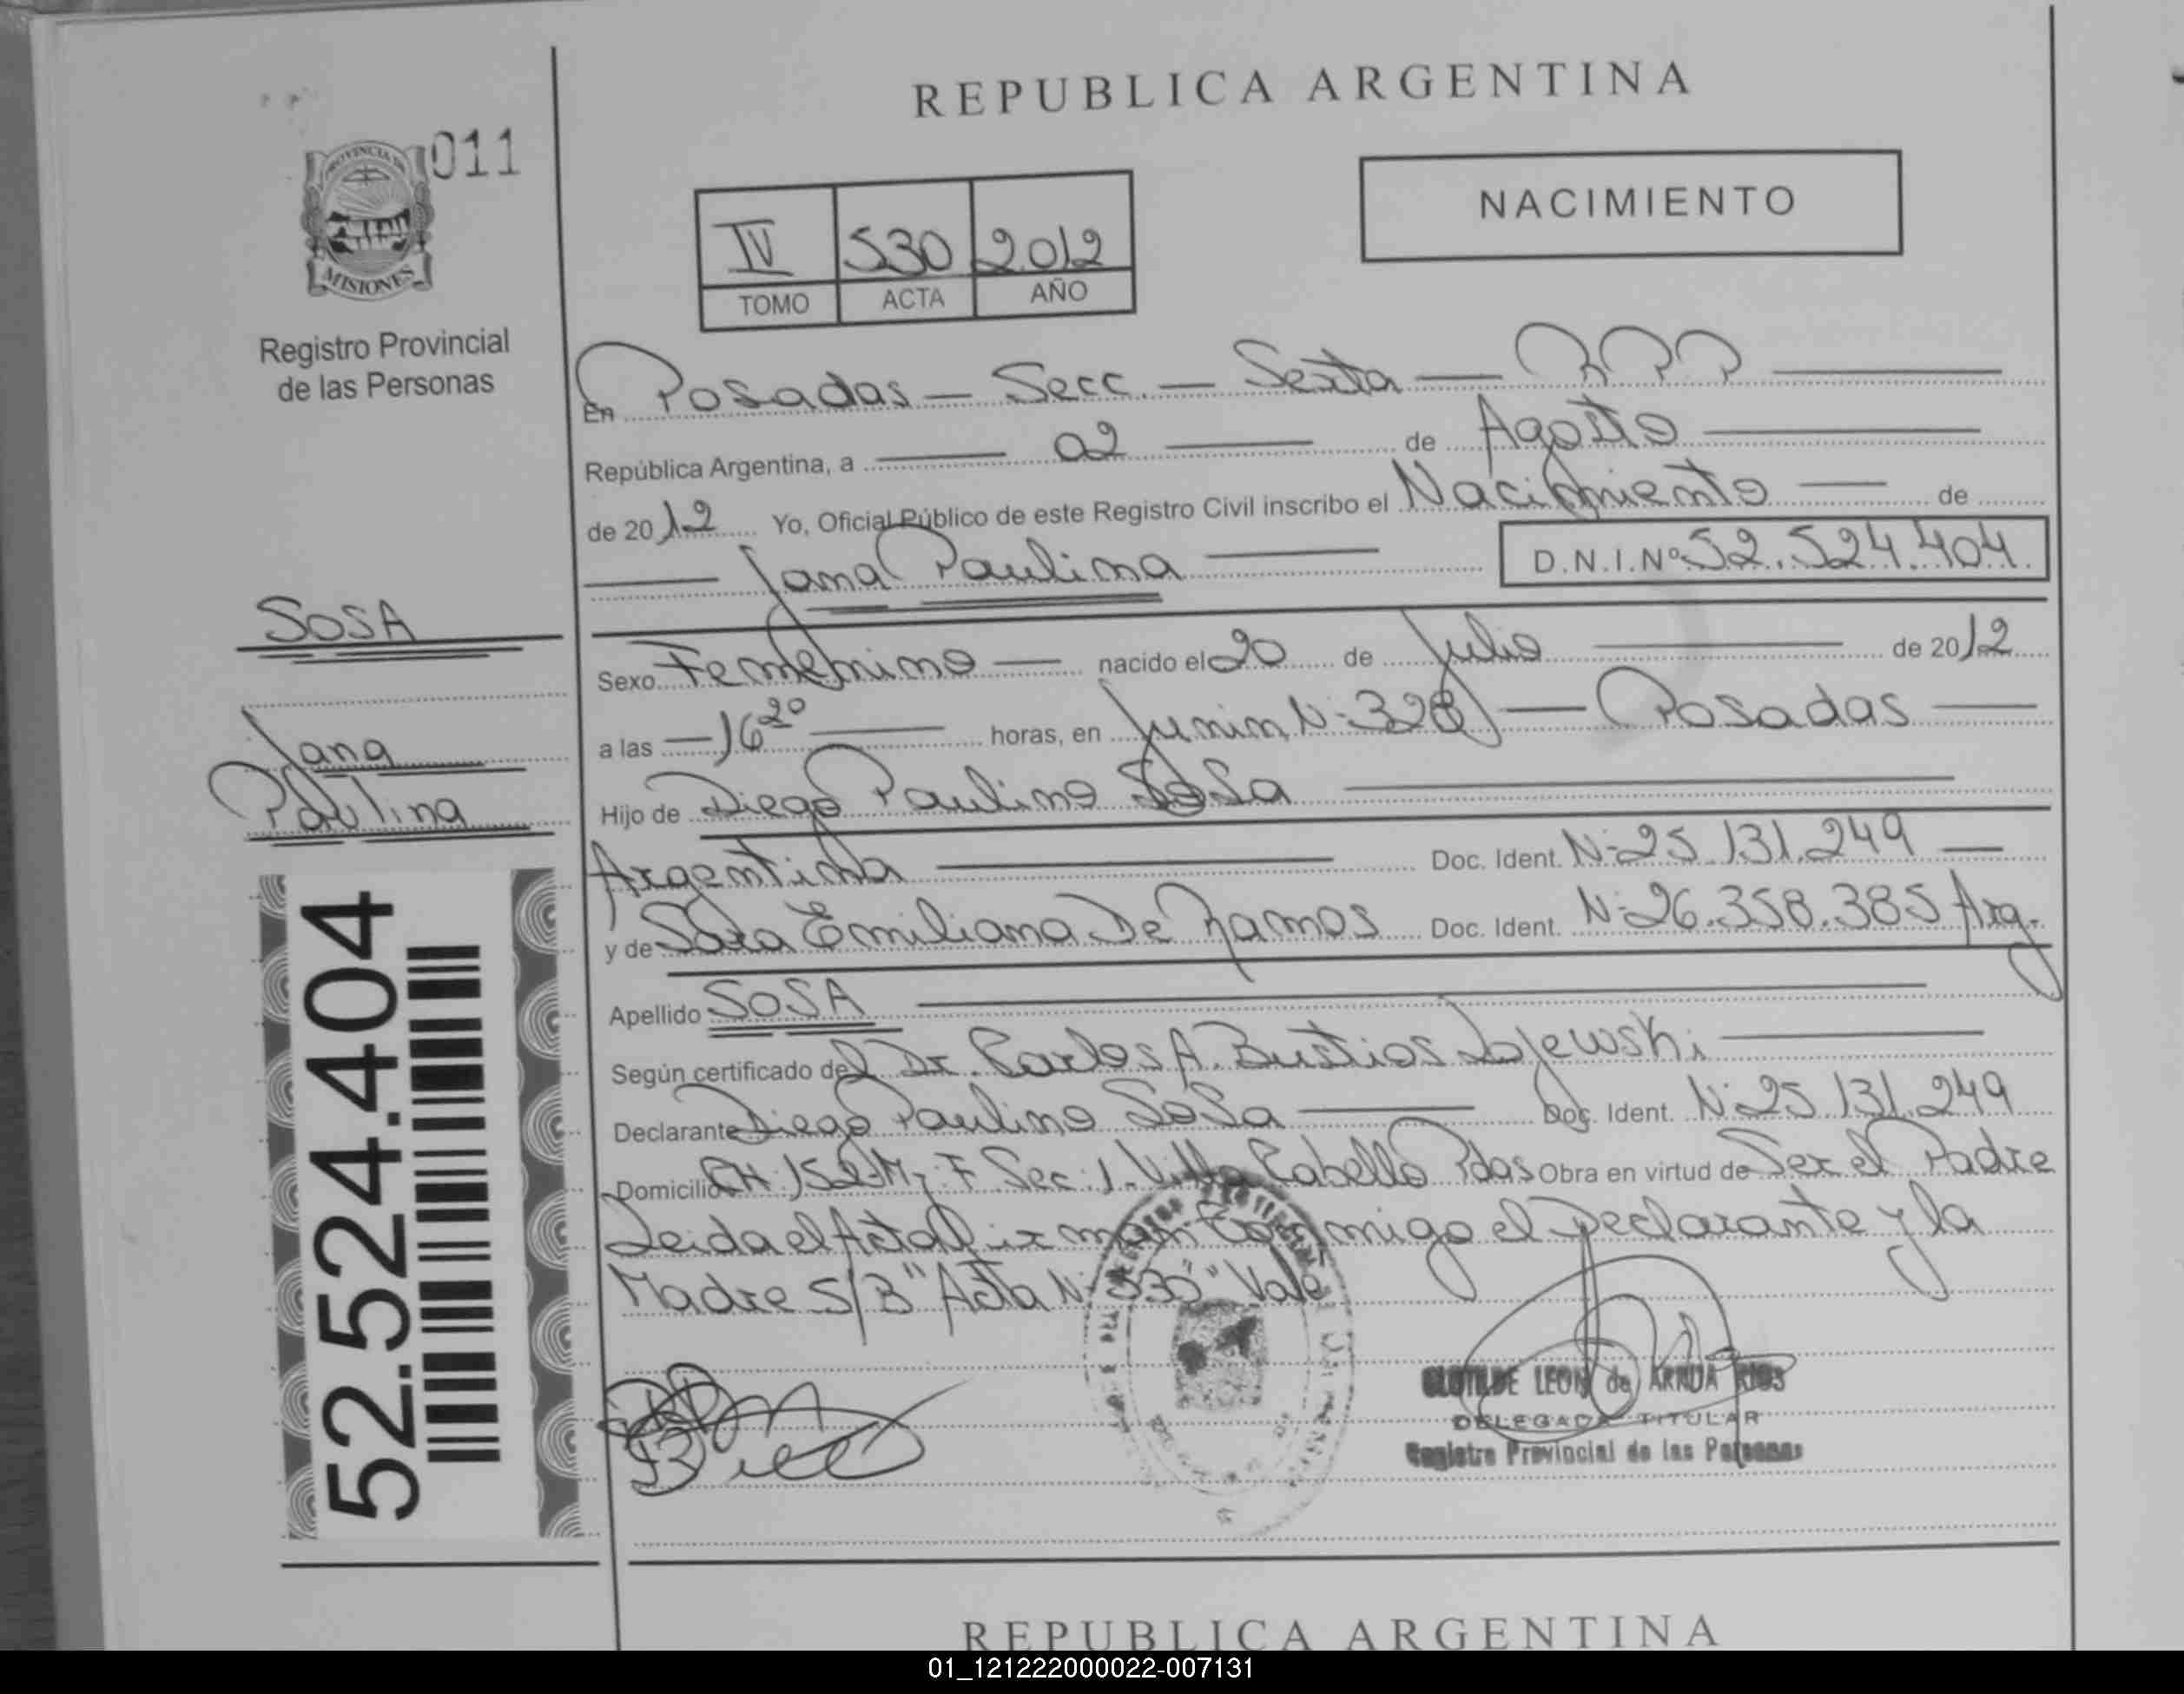 REPUBLICA ARGENTINA
011
PROVINCIA DE
MISIONES
Registro Provincial
de las Personas
NACIMIENTO
IV 530 2012
TOMO ACTA AÑO
En Posadas - Secc. - Sexta - RPP
República Argentina, a 02 de Agosto
de 2012 Yo, Oficial Público de este Registro Civil inscribo el Nacimiento de
Jana Paulina D.N.I.Nº 52.524.404
SOSA
Jana
Paulina
52.524.404
Sexo Femenino nacido el 20 de Julio de 2012
a las 16 20 horas, en Junin Nº 328 - Posadas
Hijo de Diego Paulino Sosa
Argentina Doc. Ident. Nº 25.131.249
y de Sara Emiliana De Ramos Doc. Ident. Nº 26.358.385 Arg.
Apellido SOSA
Según certificado del Dr. Carlos A. Bustios
Declarante Diego Paulino Sosa Doc. Ident. Nº 25.131.249
Domicilio CH. 152 Mz. F Sec. 1. Villa Cabello Pdas Obra en virtud de Ser el Padre
Leida el Acta firman conmigo el Declarante y la
Madre S/B "Acta Nº 530" Vale
CLOTILDE LEON de ARRUA RIOS
DELEGADA TITULAR
Registro Provincial de las Personas
REPUBLICA ARGENTINA
01_121222000022-007131